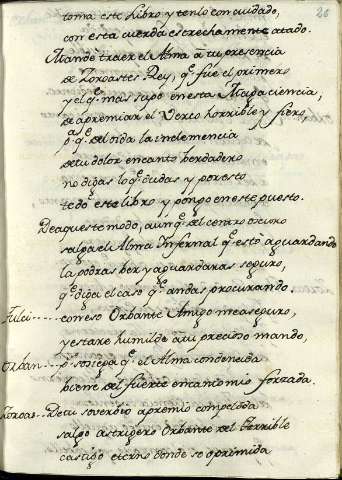 26
toma este libro y tenlo con cuidado,
con esta cuerda estrechamente atado.
Mande traer el Alma a tu presencia
de Zoroastes Rey, q.e fue el primero
y el q.e mas supo en esta Magica ciencia,
de apremiar el Verco horrible y fiero,
p.a q.e se oida la inclemencia
de tu dolor encanto berdadero
no digas lo q.e dudas y por esto
te doy este libro y pongo en este puesto.
De aqueste modo, aunq.e del centro oscuro
salga el Alma Infernal q.e está aguardando
la podras ber y aguardaras seguro,
q.e diga el caso q.e andas procurando.
Fulci.....con eso Orbante Amigo me aseguro,
y estare humilde a tu precioso mando,
Orban....p.a q.e sepa q.e el Alma condenada
biene del fuerte encanto mio forzada.
Zoroas...De tu soverbio apremio compelida
salgo astrigero Orbante del terrible
castigo eterno donde se oprimida